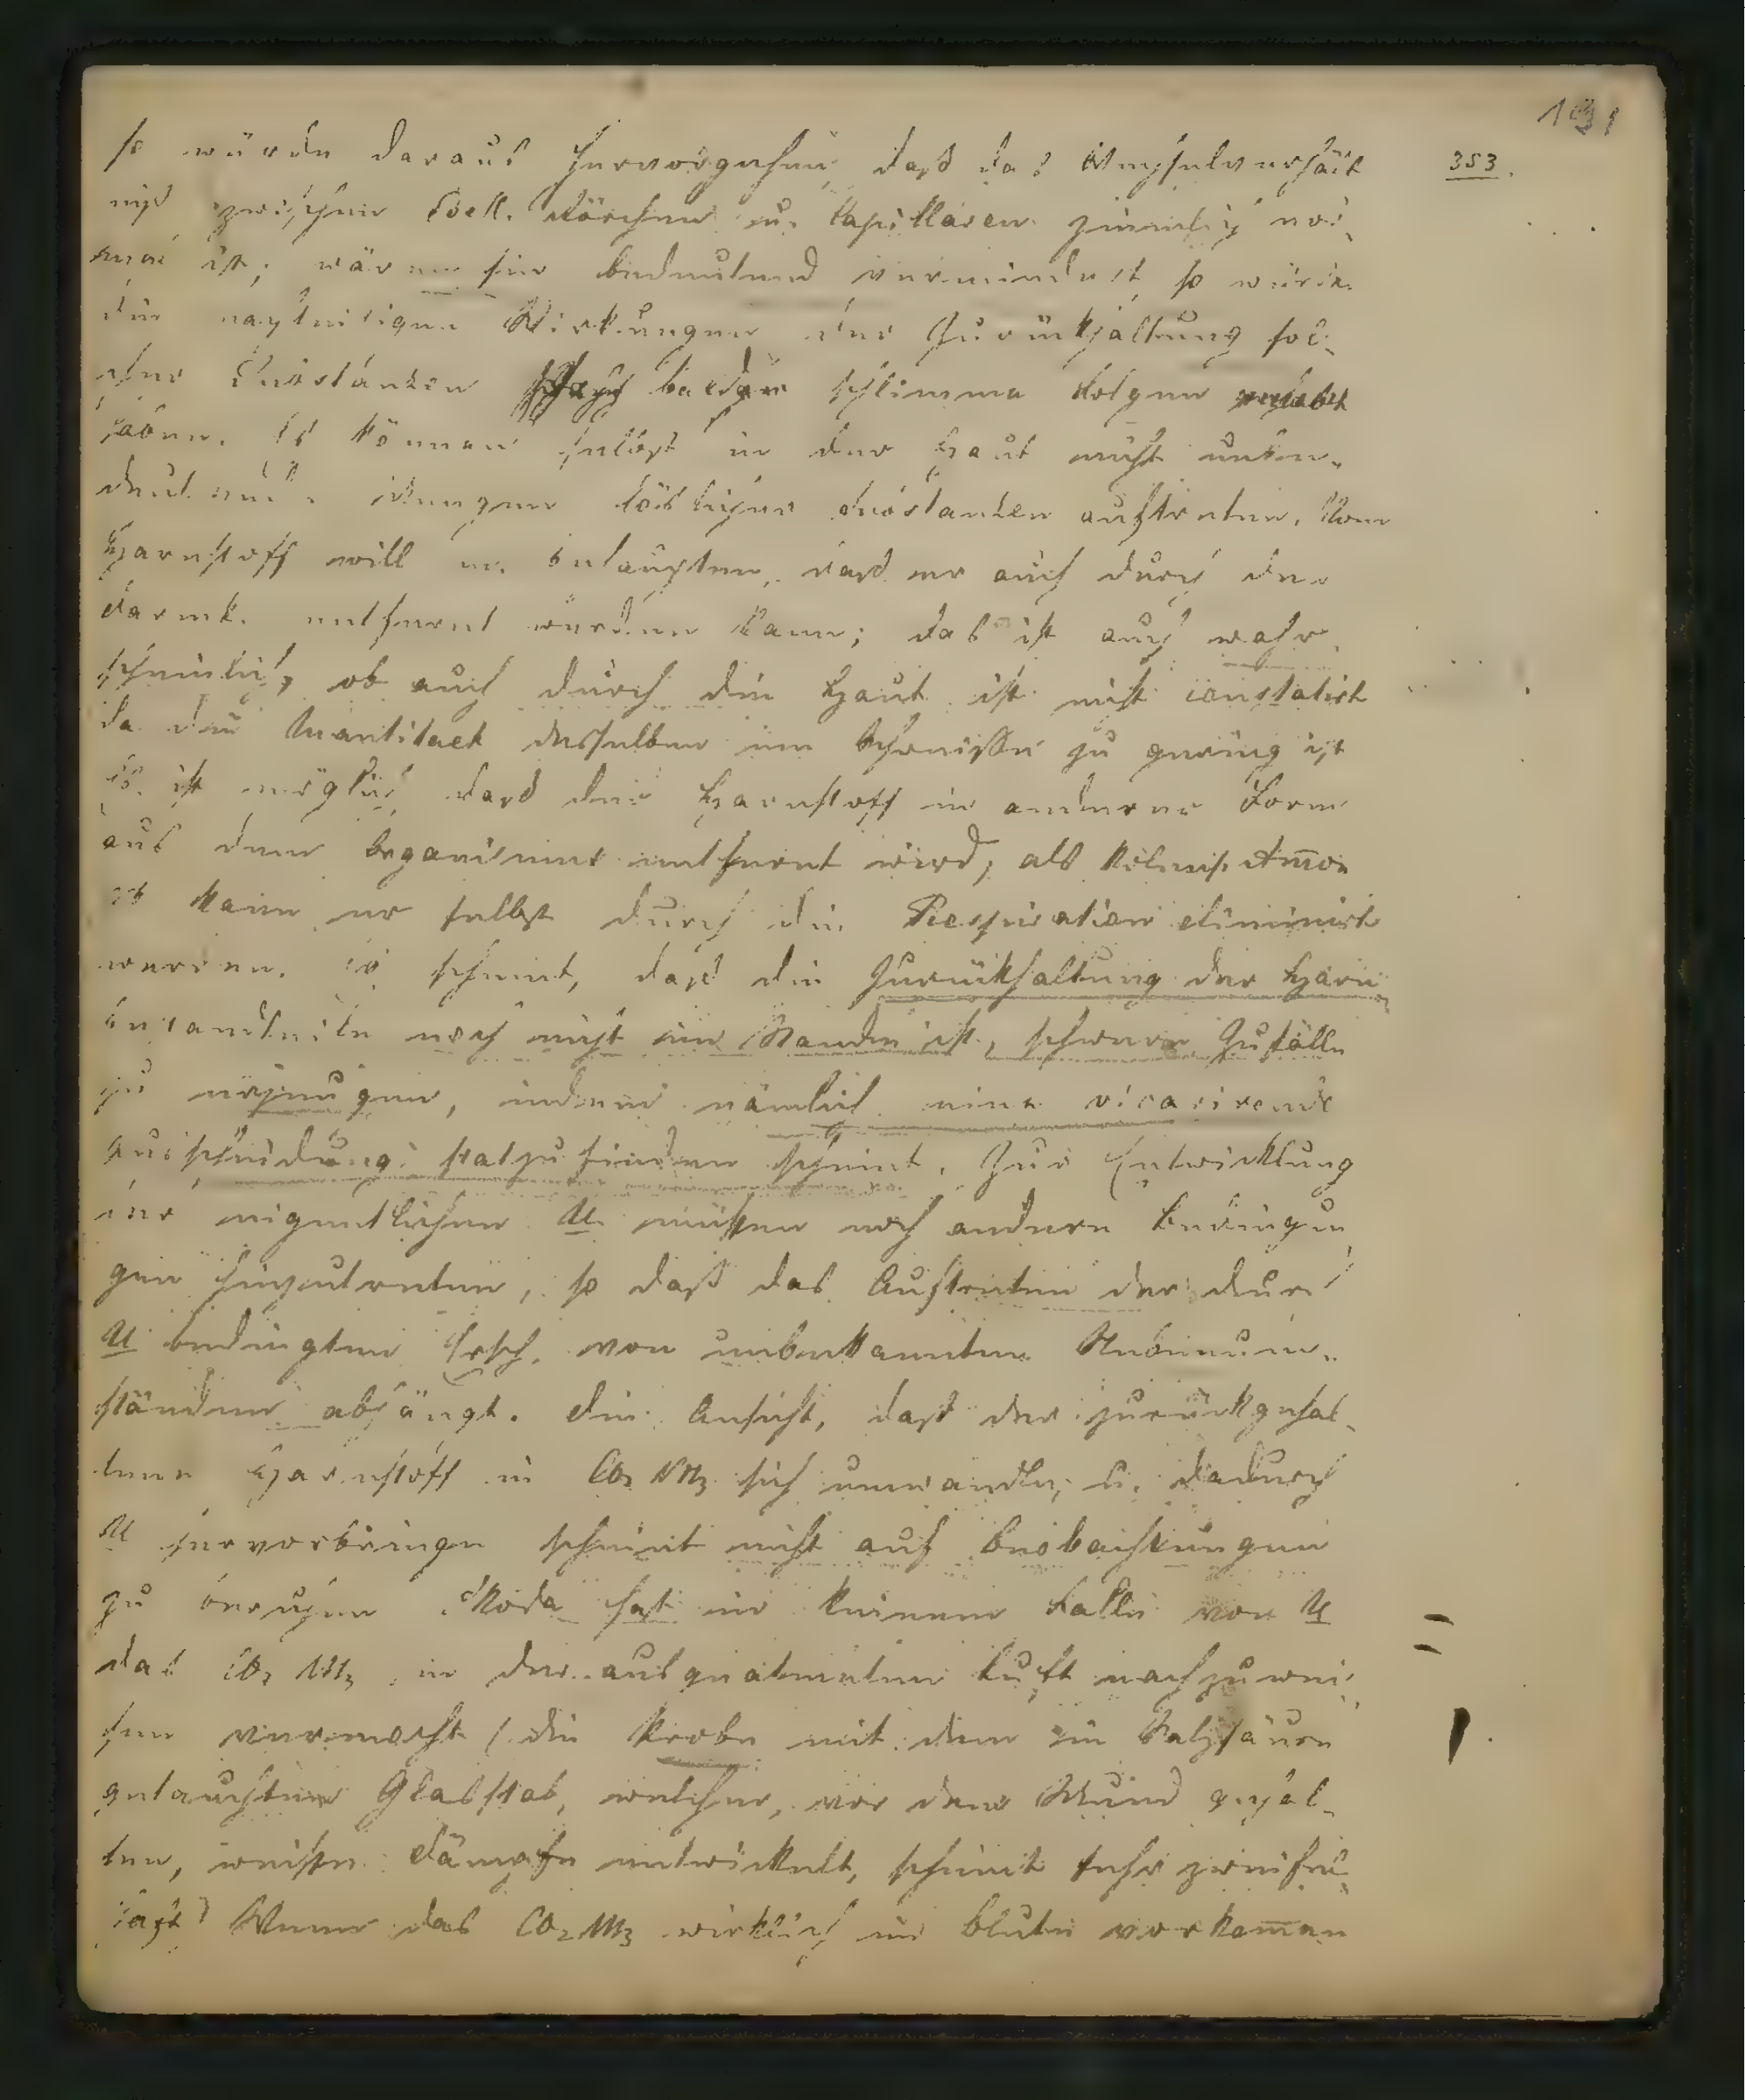 191
353.
so würde daraus hervorgehen, daß das Wechselverhält
niß zwischen Zell. Körchen u. Kapillaren ziemlich nor¬
mal ist; wären sie bedeutend vermindert, so würde
die nachteiligen Wirkungen der Zurückhaltung sol¬
cher Substanzen bald schlimme Folgen
haben. Es können selbst in der Haut nicht unbe¬
deutende Mengen löslicher Substanzen auftreten. Vom
Harnstoff will m. behaupten, daß er auch durch den
Darmk. entfernt werden kann; das ist auch wahr¬
scheinlich, ob auch durch die Haut ist nicht constatirt
da die Quantitaet desselben im Schweiße zu gering ist
Es ist möglich daß der Harnstoff in anderer Form
aus dem Organismus entfernt wird, als kolens. Amon
es kann er selbst durch die Respiration eliminirt
werden. Es scheint, daß die Zurückhaltung der Harn
bestandteile noch nicht im Stande ist, schwere Zufälle
zu erzeugen, indem nämlich eine vicarirende
Ausscheidung stattzufinden scheint. Zur Entwicklung
der eigentlichen U. müssen noch andere Bedingun
gen hinzutreten, so daß das Auftreten der durch
U bedingten Ersch. von unbekannten Nebenum¬
ständen abhängt. Die Ansicht, daß der zurückgehal¬
tene Harnstoff in CO2 NH3 sich umwandle, u. dadurch
U hervorbringe scheint nicht auf Beobachtungen
zu beruhen Skoda hat in keinem Falle von U
das CO2 NH3 in der ausgeatmeten Luft nachzuwei¬
sen vermocht (die Probe mit dem in Salzsäure
getauchten Glasstab, welcher, vor den Mund gehal¬
ten, weiße Dämpfe entwickelt, scheint sehr zweifel
haft) Wenn das CO2 NH3 wirklich im Blute vorkommen